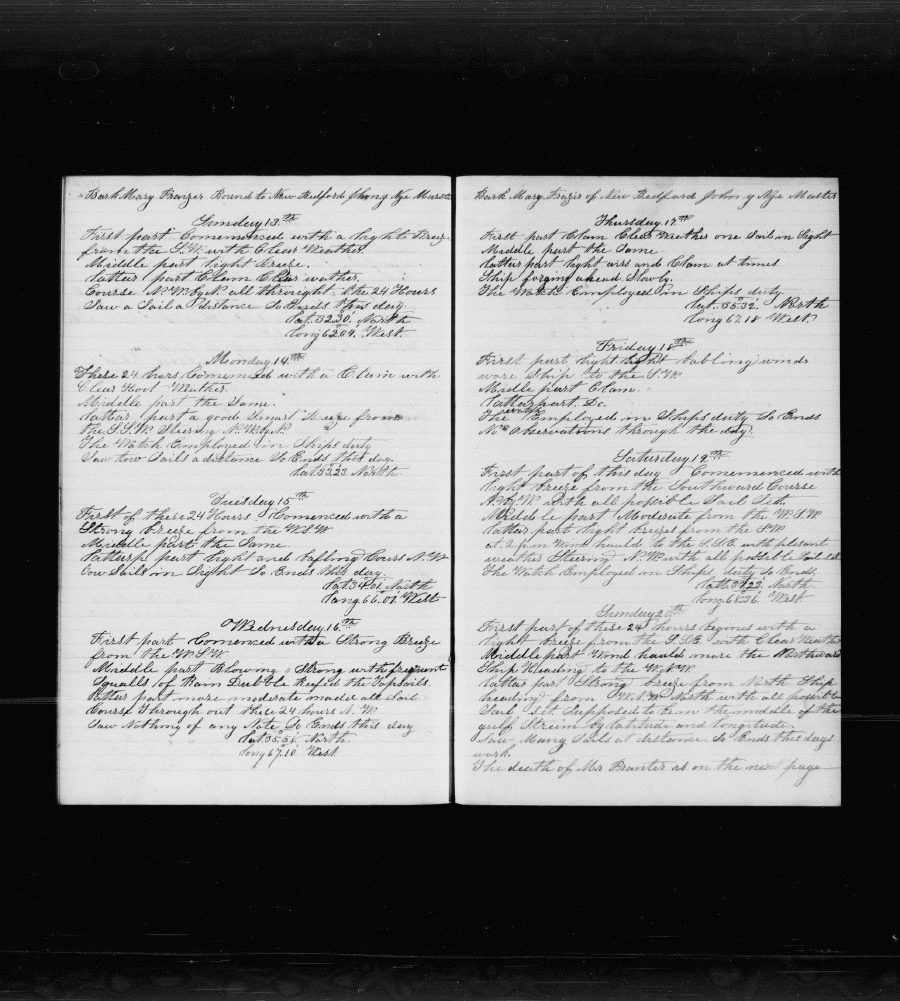 Bark Mary Frazer Bound to New Bedford Nye Master
Sunday 13th
First part Commenced with a light Breeze
from the S.W. with Clear Weather.
Middle part light Breeze.
Lattar part Clam Clear weather.
Course N.W. by N. all throught the 24 Hours
Saw a Sail a distance So Ends this day
Lat. 32.30' North
Long 62.04' West.
Monday 14th
These 24 hours Comenced with a Clam with
Clear Weather
Middle part the Same.
Lattar part a good Smart Breeze from
the S.S.W. Stering N.W. by N
The Watch Employed in Ships duty
Saw tow Sails a distance So Ends this day.
Lat. 33.23' North
Tuesday 15th
First of these 24 Hours Comenced with a
Strong breeze from the W.S.W
Middle part the Same
Latterp part light and baffling Cours N.W
tow Sails in Sight So Ends this day
Lat. 34.01' North
Long 66.01' West
Wednesday 16th
First part Comenced with a Strong Breeze
from the W.S.W.
Middle part Blowing Strong with frequent
Squalls of Rain Dubble Reefed the Topsails.
Latter part more moderate made all Sail
Course Through out these 24 hours N.W
Saw Nothing of any Note So Ends this day
Lat. 35.56' North.
Long 67.10' West
Bark Mary Frazier of New Bedford John g Nye Master
Thursday 17th
First part Clam Clear Weather one Sail in Sight
Middle part the Same
Lattar part light airs and Clam at times
Ship forging ahead Slowly.
The Watch Employed in Ships duty
Lat. 35.32' North
Long 67.18' West
Friday 18th
First part light light bafling winds
wore Ship to the S.W
Midle part Clam.
Lattar part Do.
The watch Employed in Ships duty So Ends
No Observations through the day
Saturday 19th
First part of this day Comemenced with
light breeze from the Southward Course
N. by W. with all possible Sail Set
Middle part Moderate from the W.S.W
Lattar part light breezes from the S.W
at 2 pm Wind hauld to the S.S.E. with plesant
weather Stering N.W. with all possible Sail Set
The Watch Employed in Ships duty So Ends
Latt. 37.23' North
Long. 68.36' West.
Sunday 20th
First part of these 24 hours begines with a
light breeze from the S.S.E. with Clear Weather
Middle part Wind hauld more the Northward
Ship Heading to the W.N.W
Lattar part Strong breeze from North Ship
heading from W.N.W North with all possible
Sail Set Supposed to bem the middle of the
gulf Streim by latitude and longitude
Saw Many Sails at distance So Ends this days
work.
The death of Mr Branter as on the next page